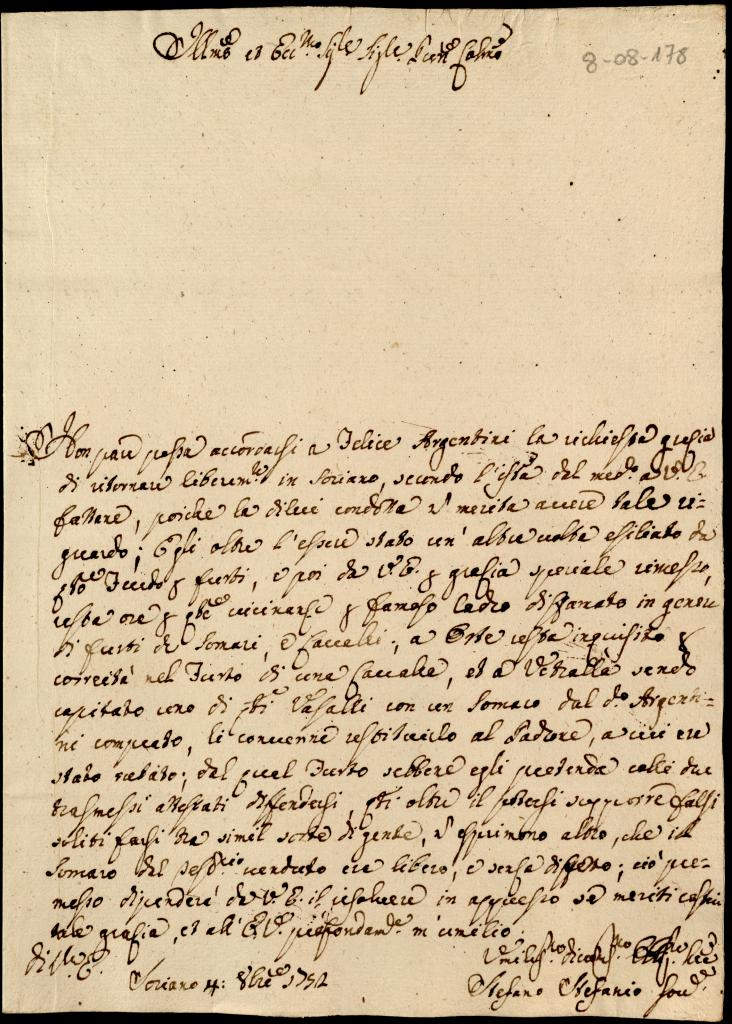 Illmo et Eccmo Sigre Sigre Pron Colmo
8-08-178
Non pare possa accordarsi a Felice Argentini la richiesta grazia
di ritornare liberamte in Soriano, secondo l'istza del medo a V. E.
fattane, poiche la di lui condotta n merita avere tale ri=
guardo; Egli oltre l'essere stato un' altra volta esiliato da
qto Feudo p furti, e poi da V. E. p grazia speciale rimesso,
resta ora p qte vicinanze p famoso ladro diffamato in genere
di furti di Somari, e Cavalli; a Orte resta inquisito p
correità nel Furto di una Cavalla, et a Vetralla sendo
capitato uno di qti Vasalli con un Somaro dal do Argenti=
ni comprato, li convenne restituirlo al Padrone, a cui era
stato rubato; dal qual Furto sebbene egli pretenda colli due
trasmessi attestati diffendersi, qti oltre il potersi supporre falsi
soliti farsi tra simil sorte di gente, n esprimono altro, che il
Somaro del venduto era libero, e senza difetto; ciò pre=
messo dipenderà da V. E. il risolvere in appresso se meriti
tale grazia, et all' E. V. profondamte m' umilio
di V. E.
Soriano 4: 8bre 1752
Umilissmo Stefano Stefanio